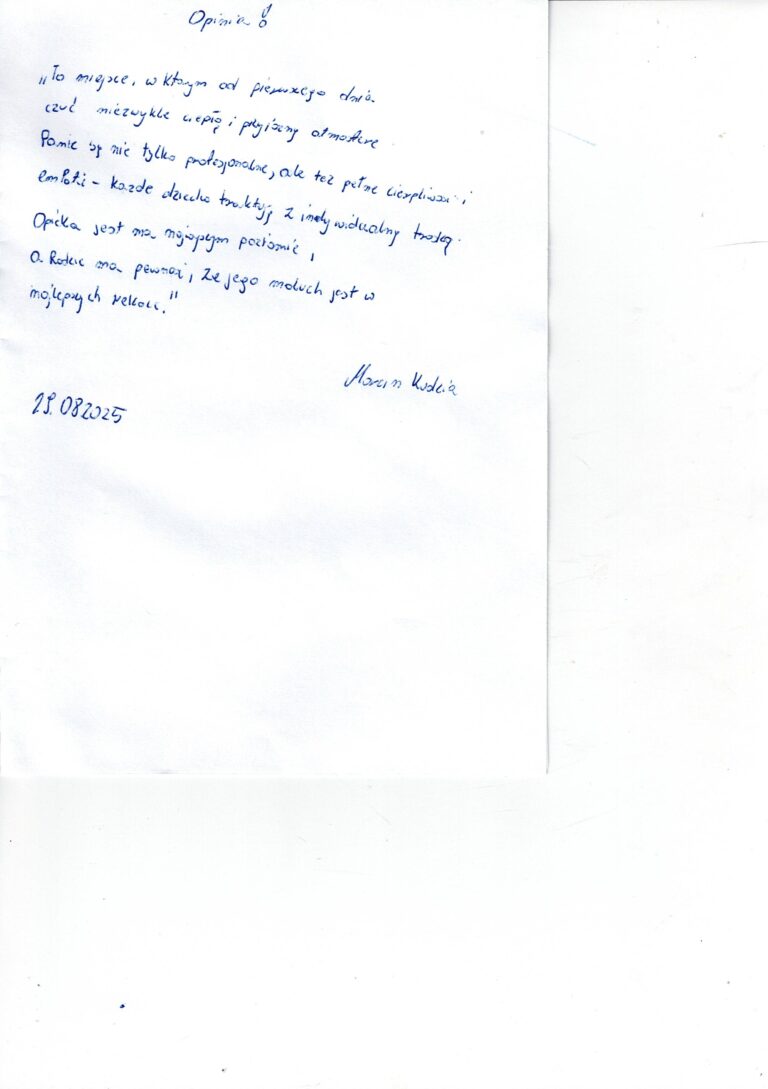 Opinia :
"To miejsce, w którym od pierwszego dnia
czuć niezwykle ciepłą i przyjazną atmosferę.
Panie są nie tylko profesjonalne, ale też pełne cierpliwości i
empatii - każde dziecko traktują z indywidualną troską.
Opieka jest na najwyższym poziomie,
a Rodzic ma pewność, że jego maluch jest w
najlepszych rękach."
Marcin
29.082025